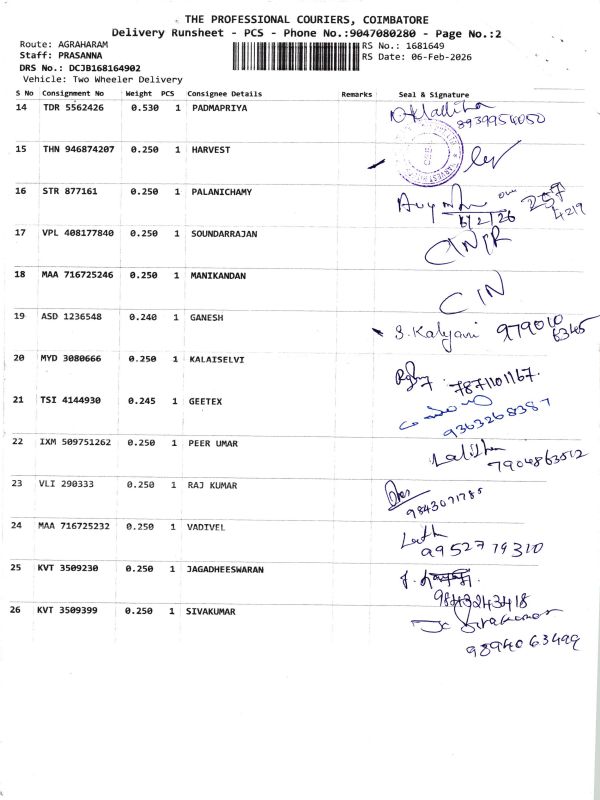 THE PROFESSIONAL COURIERS, COIMBATORE
Delivery Runsheet - PCS - Phone No.:9047080280 - Page No.:2
Route: AGRAHARAM RS No.: 1681649
Staff: PRASANNA RS Date: 06-Feb-2026
DRS No.: DCJB168164902
Vehicle: Two Wheeler Delivery
S No Consignment No Weight PCS Consignee Details Remarks Seal & Signature
14 TDR 5562426 0.530 1 PADMAPRIYA
8939954050
15 THN 946874207 0.250 1 HARVEST
16 STR 877161 0.250 1 PALANICHAMY
6/2/26 4219
17 VPL 408177840 0.250 1 SOUNDARRAJAN
18 MAA 716725246 0.250 1 MANIKANDAN
CIN
19 ASD 1236548 0.240 1 GANESH
S. Kalyani 979010
6345
20 MYD 3080666 0.250 1 KALAISELVI
7871101167.
21 TSI 4144930 0.245 1 GEETEX
9363268387
22 IXM 509751262 0.250 1 PEER UMAR
Lalitha
7904863512
23 VLI 290333 0.250 1 RAJ KUMAR
9843071785
24 MAA 716725232 0.250 1 VADIVEL
9952779310
25 KVT 3509230 0.250 1 JAGADHEESWARAN
9843243418
26 KVT 3509399 0.250 1 SIVAKUMAR
Sivakumar
9894063499